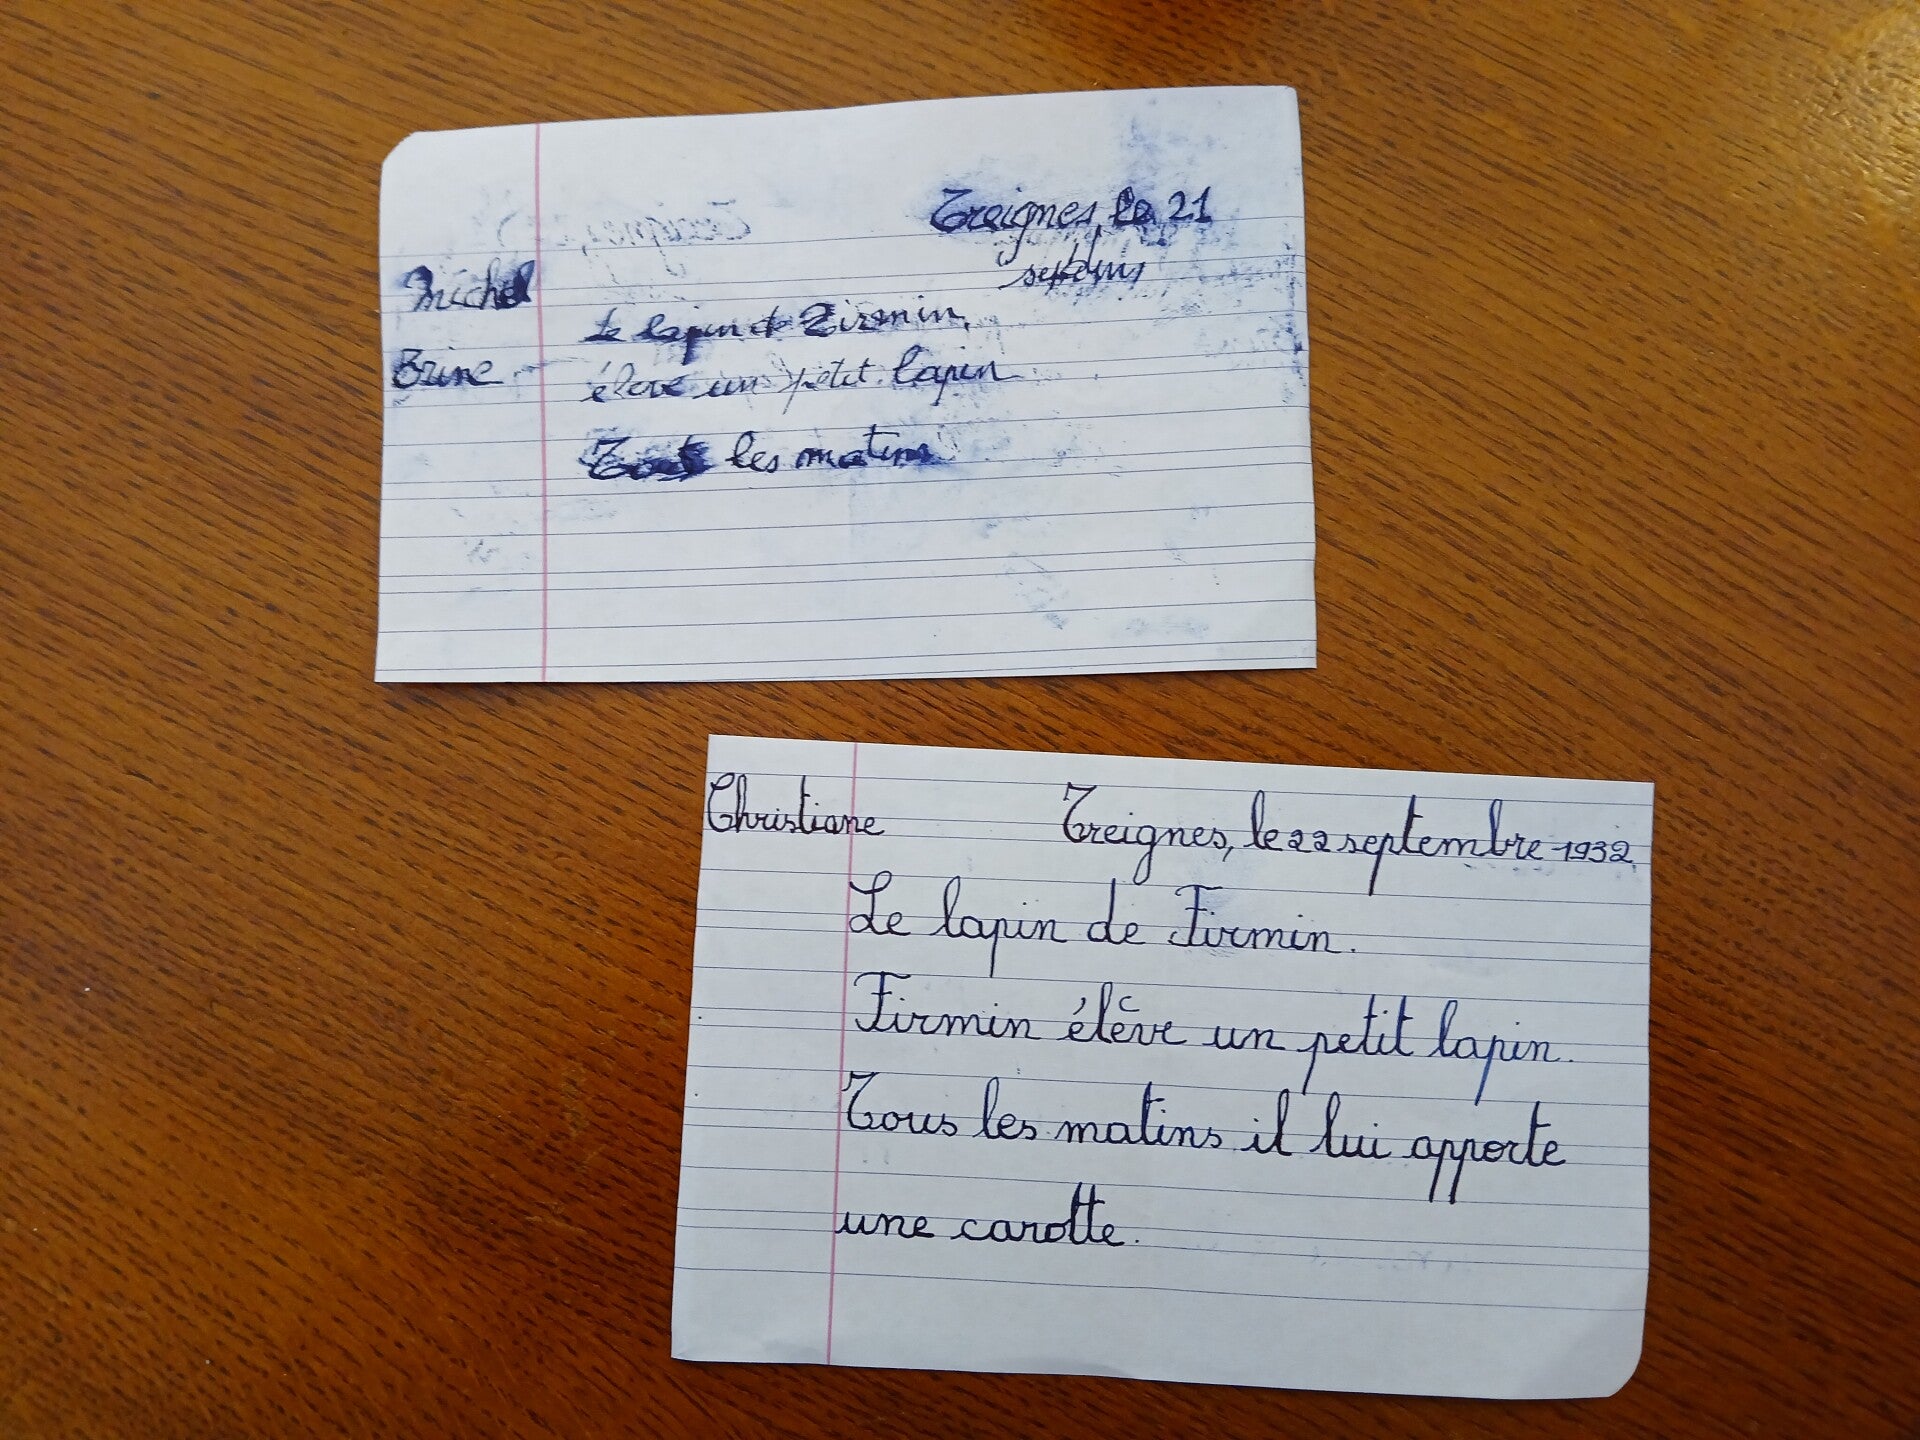 Treignes, le 21
septem
Michel
Le lapin de Firmin,
Brine
élève un petit lapin
Tous les matins
Christiane
Treignes, le 22 septembre 1932
Le lapin de Firmin.
Firmin élève un petit lapin.
Tous les matins il lui apporte
une carotte.